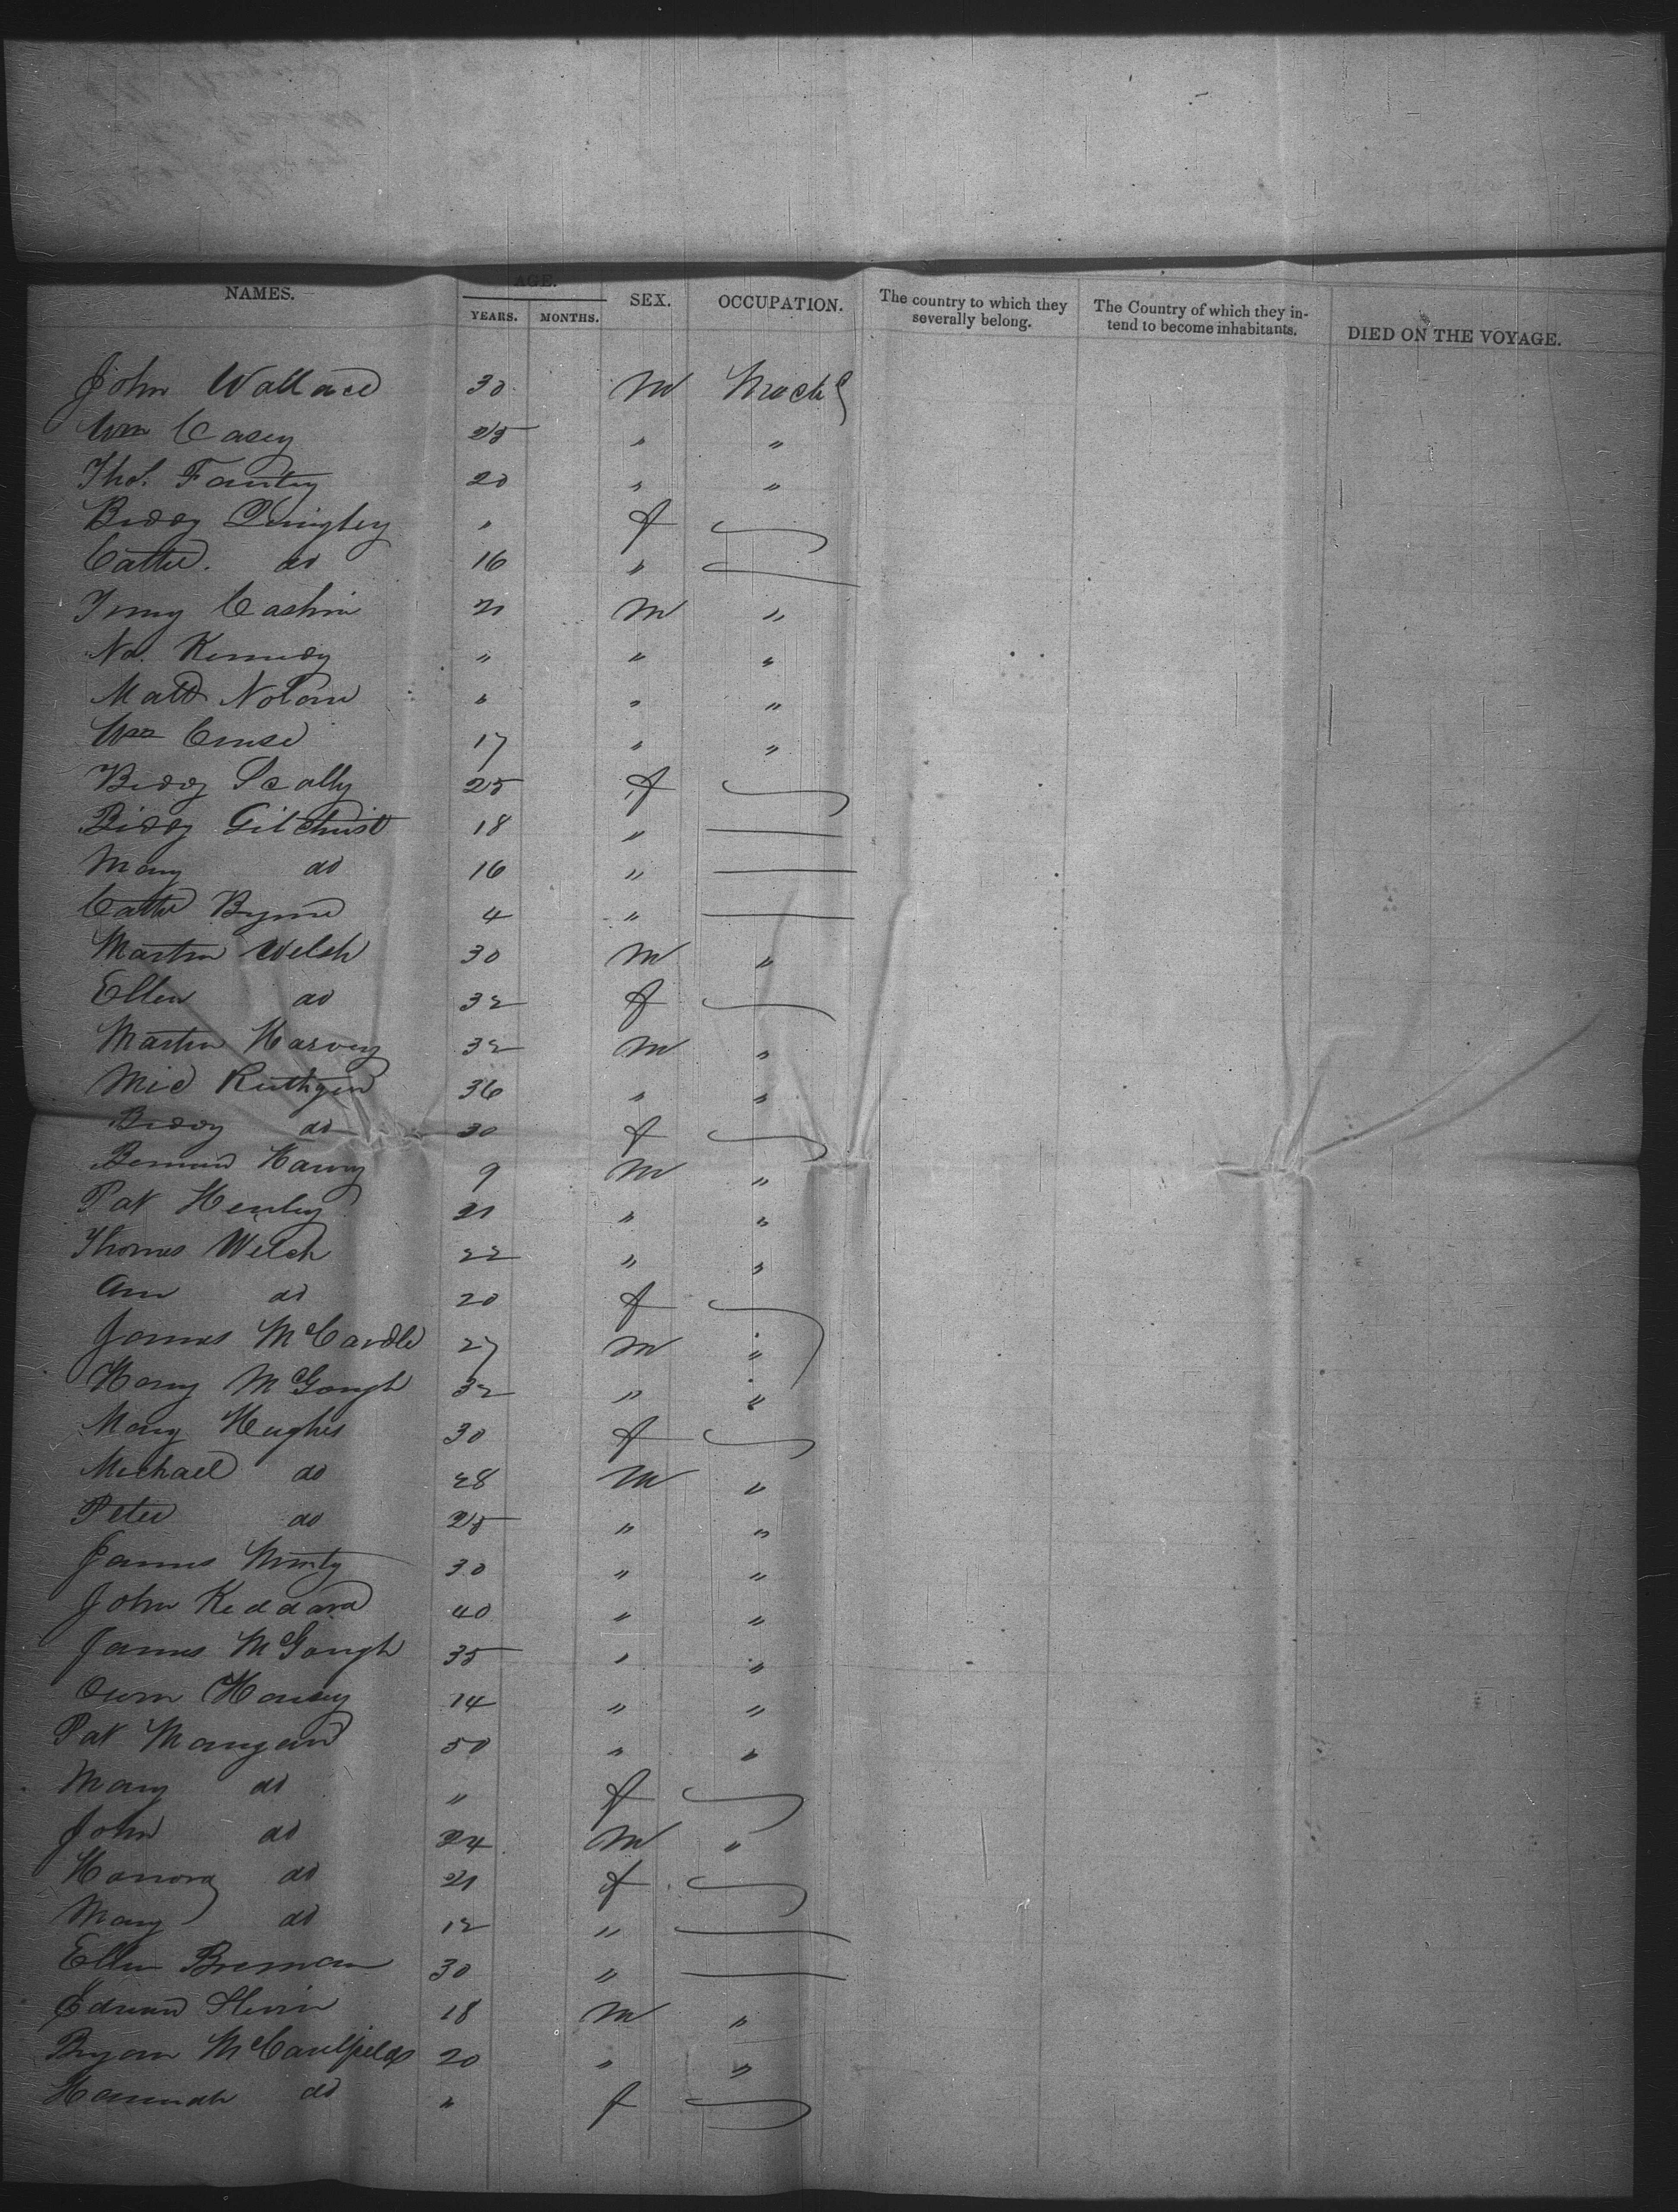 AGE.
NAMES. YEARS. MONTHS. SEX. OCCUPATION. The country to which they severally belong. The Country of which they intend to become inhabitants. DIED ON THE VOYAGE.
John Wallace 30 M
Wm Casey 25 " "
Thos. 20 " "
Biddy " f
Cathe. do 16 "
Cashin 21 M "
Kennedy " " "
Matt Nolan " " "
Wm 17 " "
Biddy Scally 25 f
Biddy Gilchrist 18 "
Mary do 16 "
Cathe Byrne 4 "
Martin Welsh 30 M "
Ellen do 32 f
Martin Harvey 32 M "
Mic 36 " "
Biddy do 30 f
Bernard 9 M "
Pat Henley 21 " "
Thomas Welch 22 " "
Ann do 20 f
James McCardle 27 M "
McGough 32 " "
Mary Hughes 30 f
Michael do 28 M "
Peter do 25 " "
James 30 " "
John Keddard 40 " "
James McGough 35 " "
Owen 14 " "
Pat Mangan 50 " "
Mary do " f
John do 24 M "
Hanora do 21 f
Mary do 12 "
Ellen Brennan 30 "
Edward Slevin 18 M "
Bryan McCaulfield 20 " "
Hannah do " f